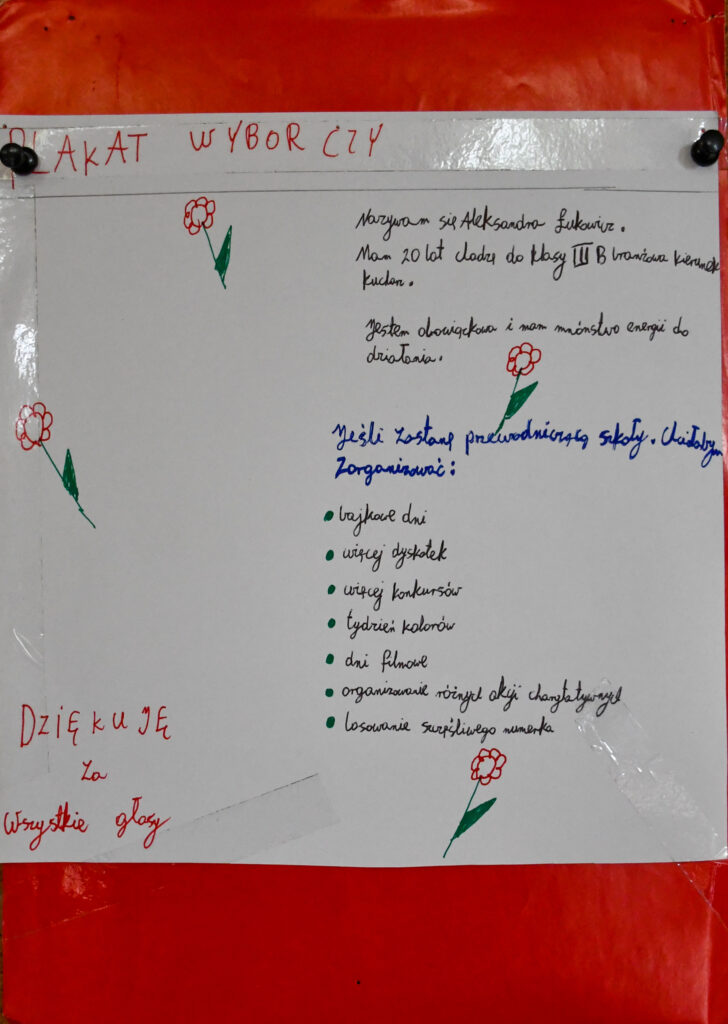 PLAKAT WYBORCZY
Nazywam się Aleksandra Łukowicz.
Mam 20 lat chodzę do klasy III B branżowa kierunek
kucharz.
Jestem obowiązkowa i mam mnóstwo energii do
działania.
Jeśli zostanę przewodniczącą szkoły. Chciałabym
Zorganizować:
• bajkowe dni
• więcej dyskotek
• więcej konkursów
• tydzień kolorów
• dni filmowe
• organizowanie różnych akcji charytatywnych
• losowanie szczęśliwego numerka
DZIĘKUJĘ
za
wszystkie głosy